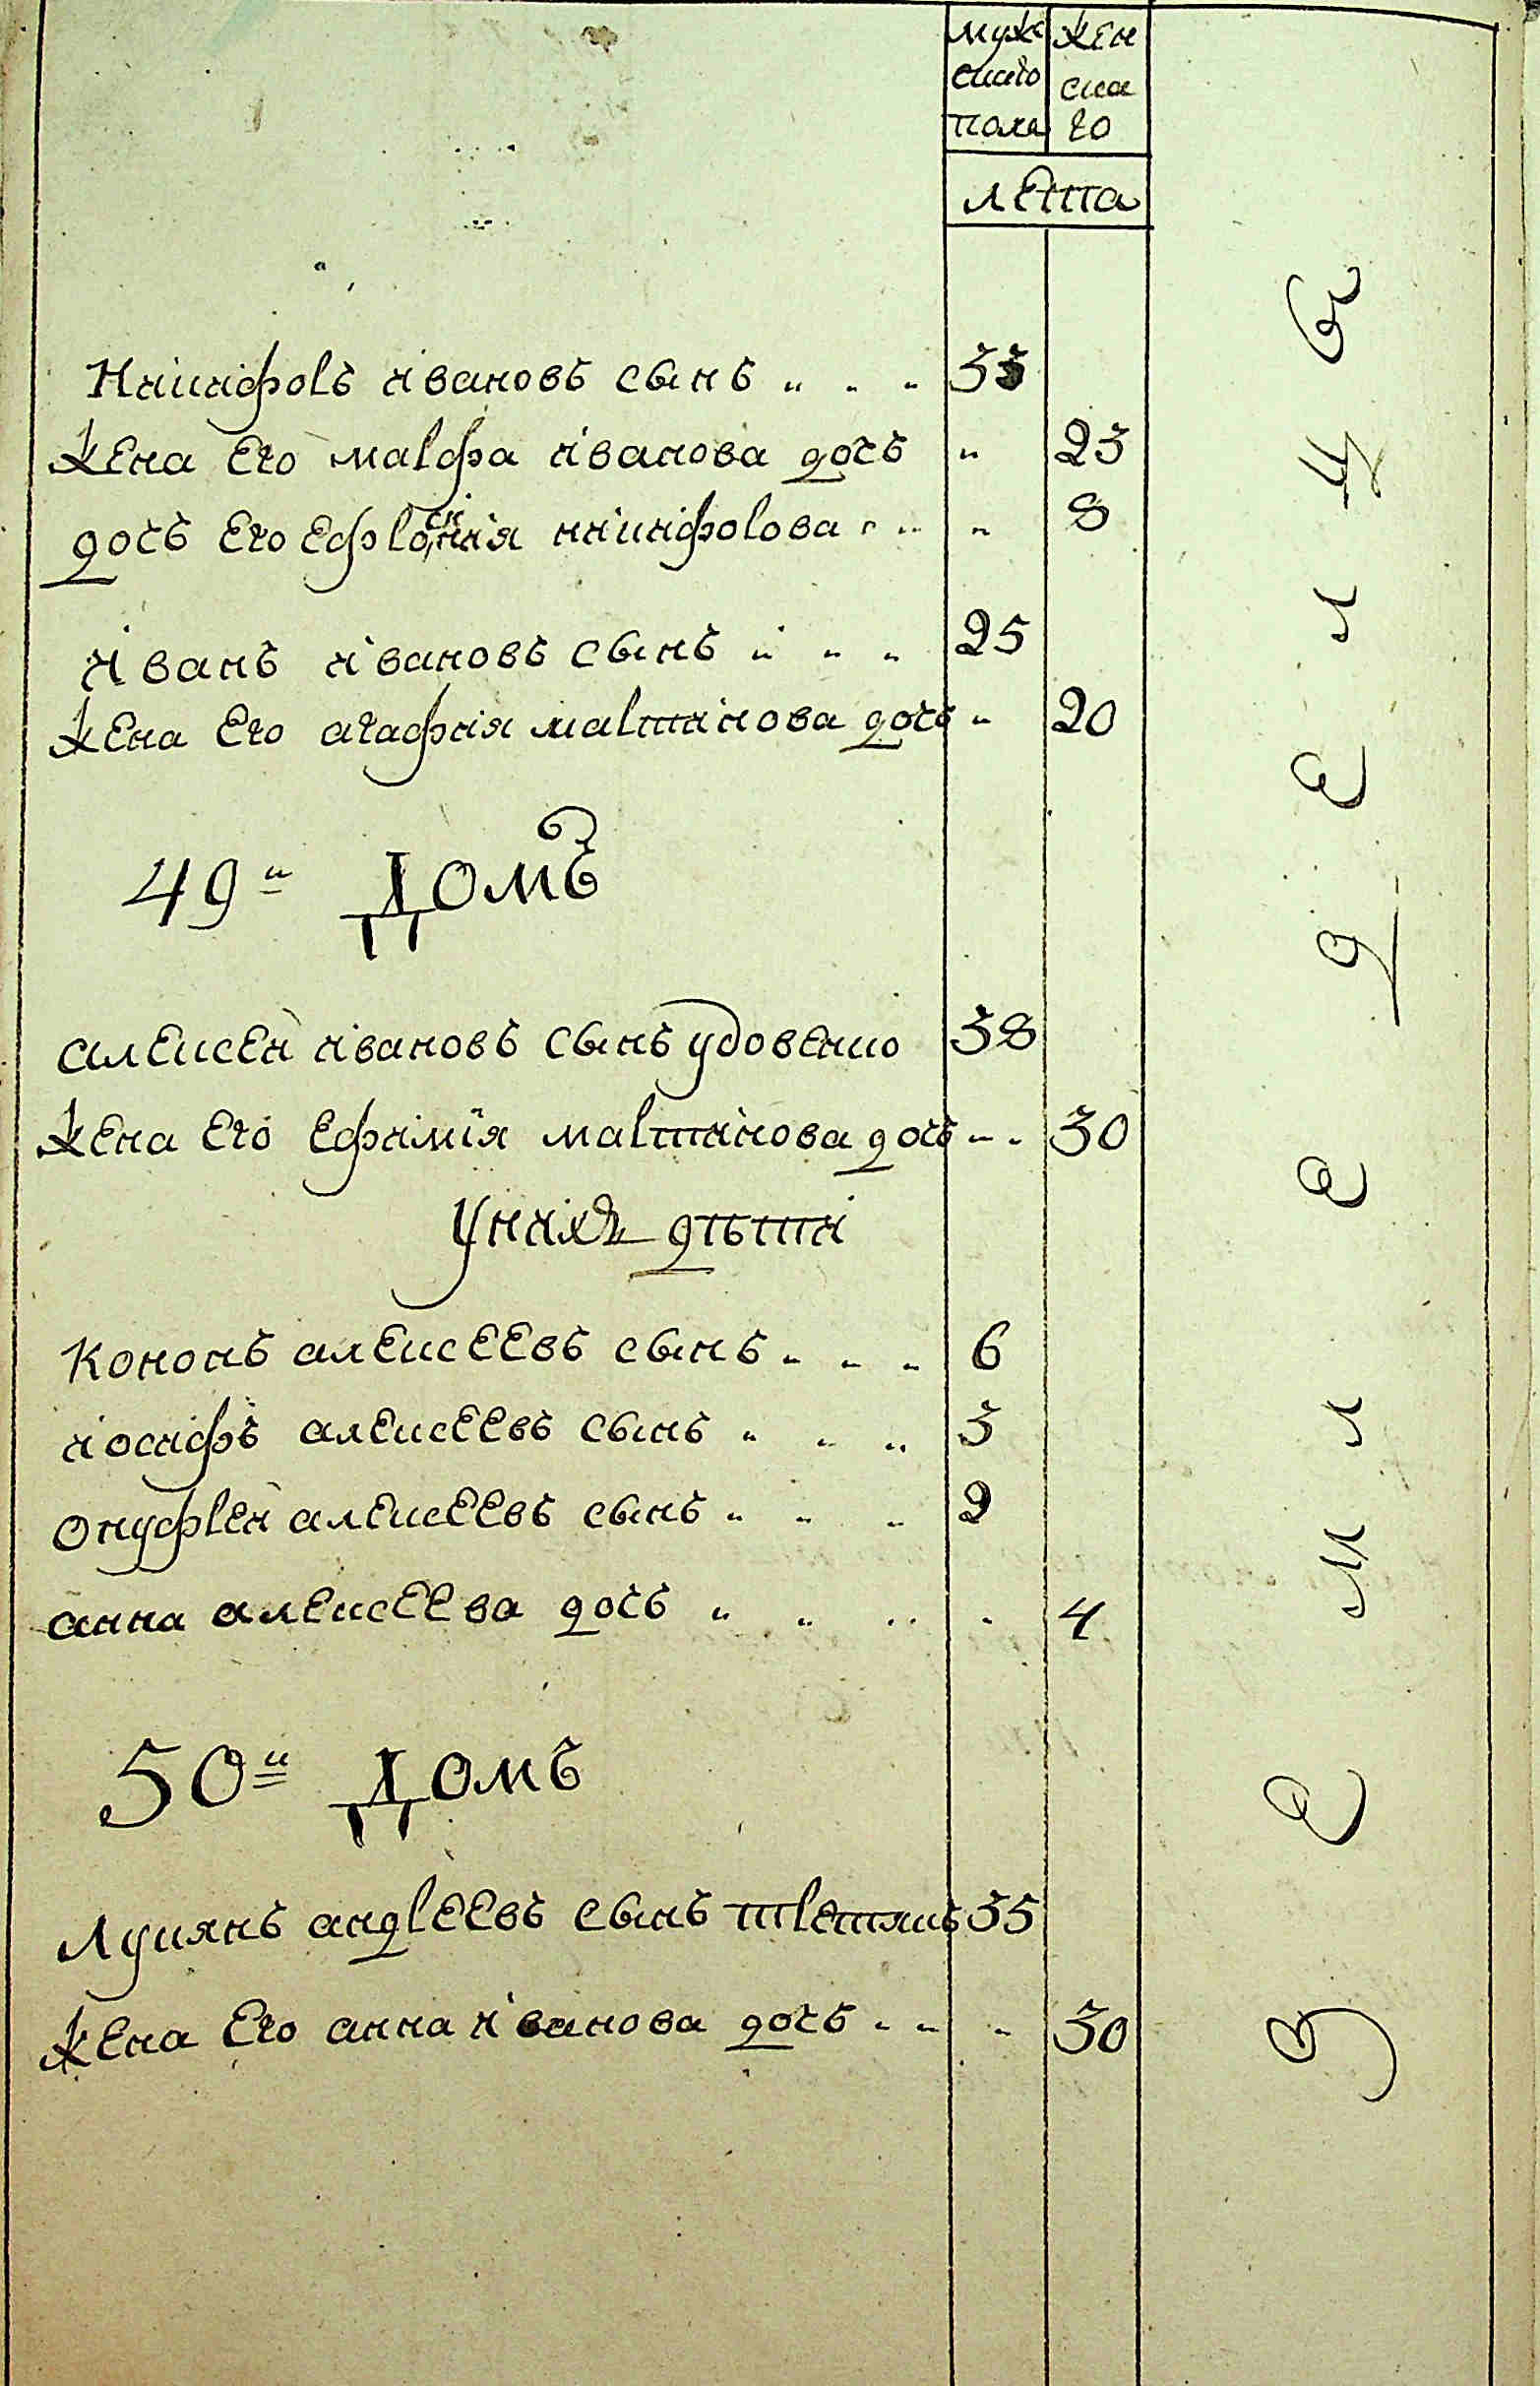 Муж Жен
скаго ска
пола го
лѣта
Никифоръ Ивановъ сынъ 33
Жена его Марфа Иванова дочь 23
дочь его Ефросинія Никифорова 8
Иванъ Ивановъ сынъ 25
Жена его Агафия Мартинова дочь 20
49й Домъ
Алексей Ивановъ сынъ Удовенко 38
Жена его Ефимїя Мартинова дочь 30
У нихъ дѣти
Кононъ Алексеевъ сынъ 6
Иосифъ Алексеевъ сынъ 3
Онуфрей Алексеевъ сынъ 2
Анна Алексеева дочь 4
50й Домъ
Лукянъ Андреевъ сынъ Третякъ 35
Жена его Анна Иванова дочь 30
Земледелцы